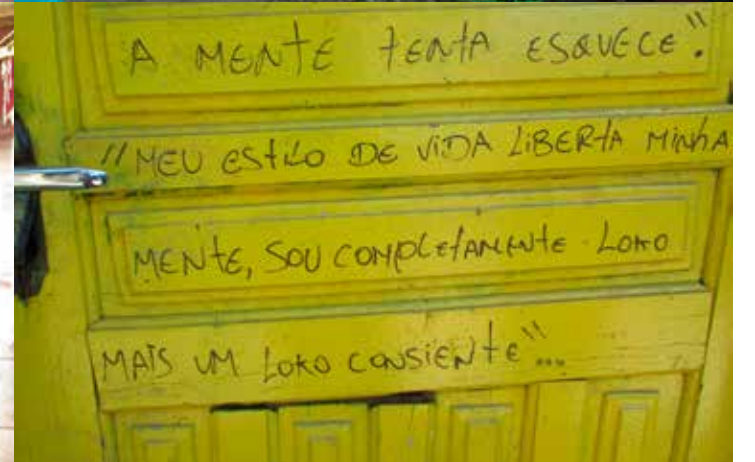 A MENTE TENTA ESQUECE".
"MEU ESTILO DE VIDA LIBERTA MINHA
MENTE, SOU COMPLETAMENTE LOKO
MAIS UM LOKO CONSIENTE"...